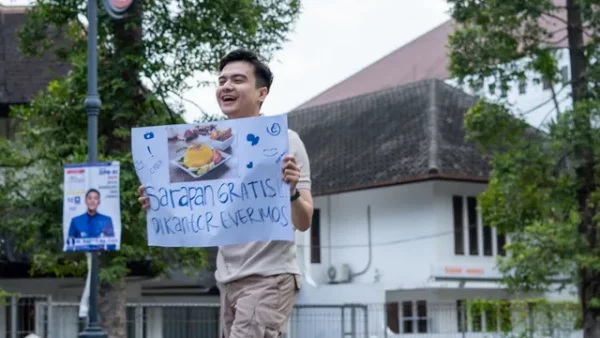 SARAPAN GRATIS!
DIKANTOR EVERMOS